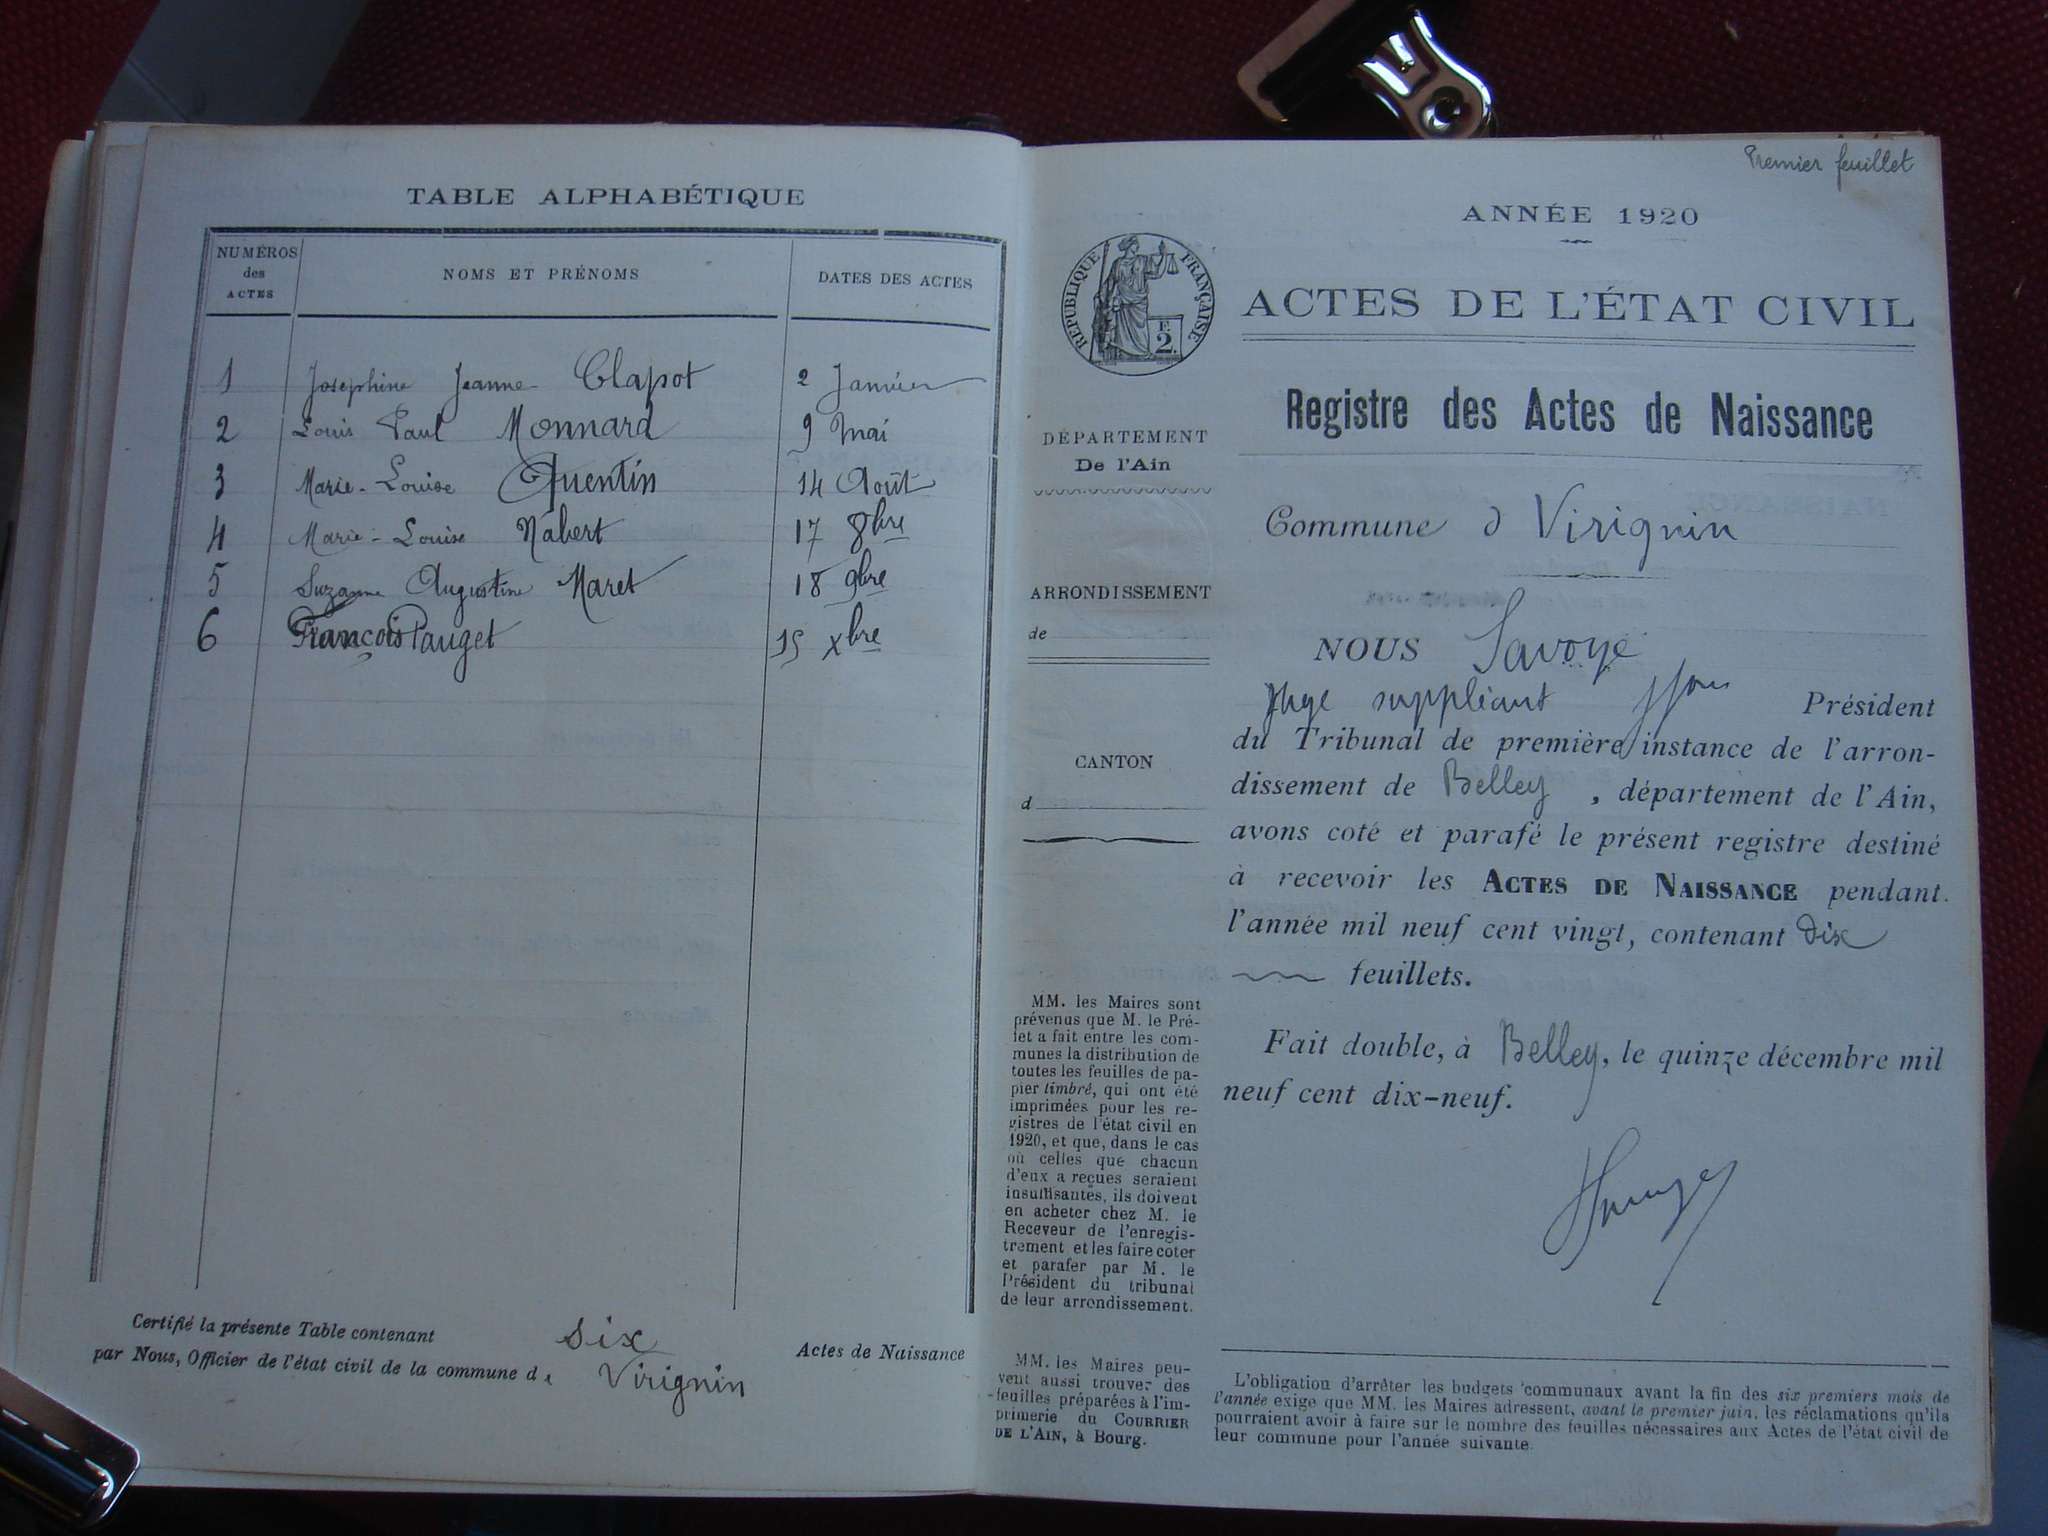 TABLE ALPHABÉTIQUE
NUMÉROS des ACTES
NOMS ET PRÉNOMS
DATES DES ACTES
1 Josephine Jeanne Clapot 2 Janvier
2 Louis Paul Monnard 9 Mai
3 Marie-Louise Quentin 14 Août
4 Marie-Louise Nabert 17 8bre
5 Suzanne Augustine Maret 18 9bre
6 François Pauget 15 Xbre
Certifié la présente Table contenant six Actes de Naissance
par Nous, Officier de l'état civil de la commune d Virignin
Premier feuillet
ANNÉE 1920
RÉPUBLIQUE FRANÇAISE
F. 2.
ACTES DE L'ÉTAT CIVIL
Registre des Actes de Naissance
DÉPARTEMENT
De l'Ain
ARRONDISSEMENT
de
CANTON
d
Commune d Virignin
NOUS Savoye
Juge suppléant Président
du Tribunal de première instance de l'arron-
dissement de Belley, département de l'Ain,
avons coté et parafé le présent registre destiné
à recevoir les ACTES DE NAISSANCE pendant
l'année mil neuf cent vingt, contenant dix
feuillets.
Fait double, à Belley, le quinze décembre mil
neuf cent dix-neuf.
MM. les Maires sont
prévenus que M. le Pré-
fet a fait entre les com-
munes la distribution de
toutes les feuilles de pa-
pier timbré, qui ont été
imprimées pour les re-
gistres de l'état civil en
1920, et que, dans le cas
où celles que chacun
d'eux a reçues seraient
insuffisantes, ils doivent
en acheter chez M. le
Receveur de l'enregis-
trement et les faire coter
et parafer par M. le
Président du tribunal
de leur arrondissement.
MM. les Maires peu-
vent aussi trouver des
feuilles préparées à l'im-
primerie du COURRIER
DE L'AIN, à Bourg.
L'obligation d'arrêter les budgets communaux avant la fin des six premiers mois de
l'année exige que MM. les Maires adressent, avant le premier juin, les réclamations qu'ils
pourraient avoir à faire sur le nombre des feuilles nécessaires aux Actes de l'état civil de
leur commune pour l'année suivante.